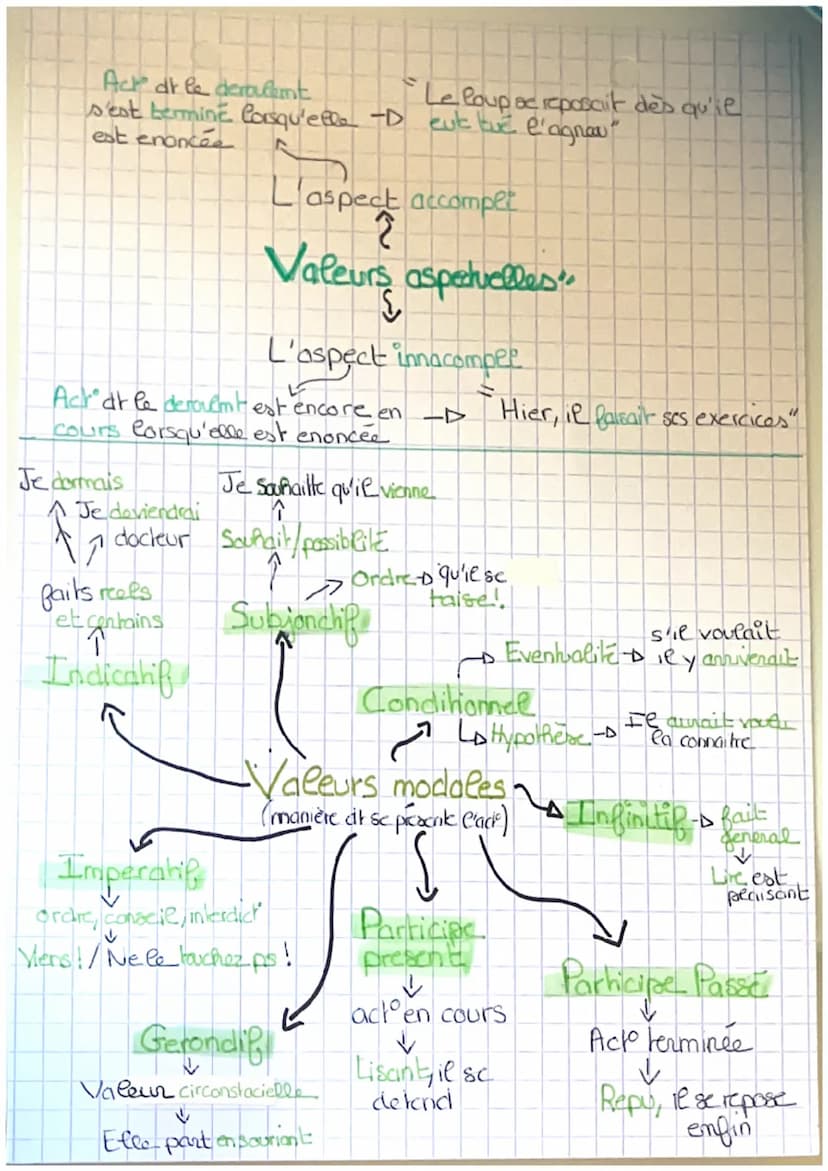 Act° dt le deroulemt
s'est terminé lorsqu'elle
est enoncée
"Le loup se reposait dès qu'il
eut tué l'agnau"
L'aspect accompli
Valeurs aspectuelles
L'aspect innacompli
Act° dt le deroulmt est encore en
cours lorsqu'elle est enoncée
"Hier, il faisait ses exercices"
Je dormais
Je deviendrai
docteur
faits reels
et certains
Indicatif
Je souhaitte qu'il vienne
Souhait/possibilité
Ordre qu'il se
taise!
Subjonctif
Conditionnel
Eventualité
s'il voulait
il y arriverait
Hypothèse
Il aurait voulu
la connaitre
Valeurs modales
(manière dt se présente l'act°)
Infinitif
fait
general
Lire est
peusant
Imperatif
ordre, conseil, interdict°
Viens! / Ne le touchez ps!
Participe
present
act° en cours
Lisant, il se
detend
Participe Passé
Act° terminée
Repu, il se repose
enfin
Gerondif
Valeur circonstacielle
Elle part en souriant